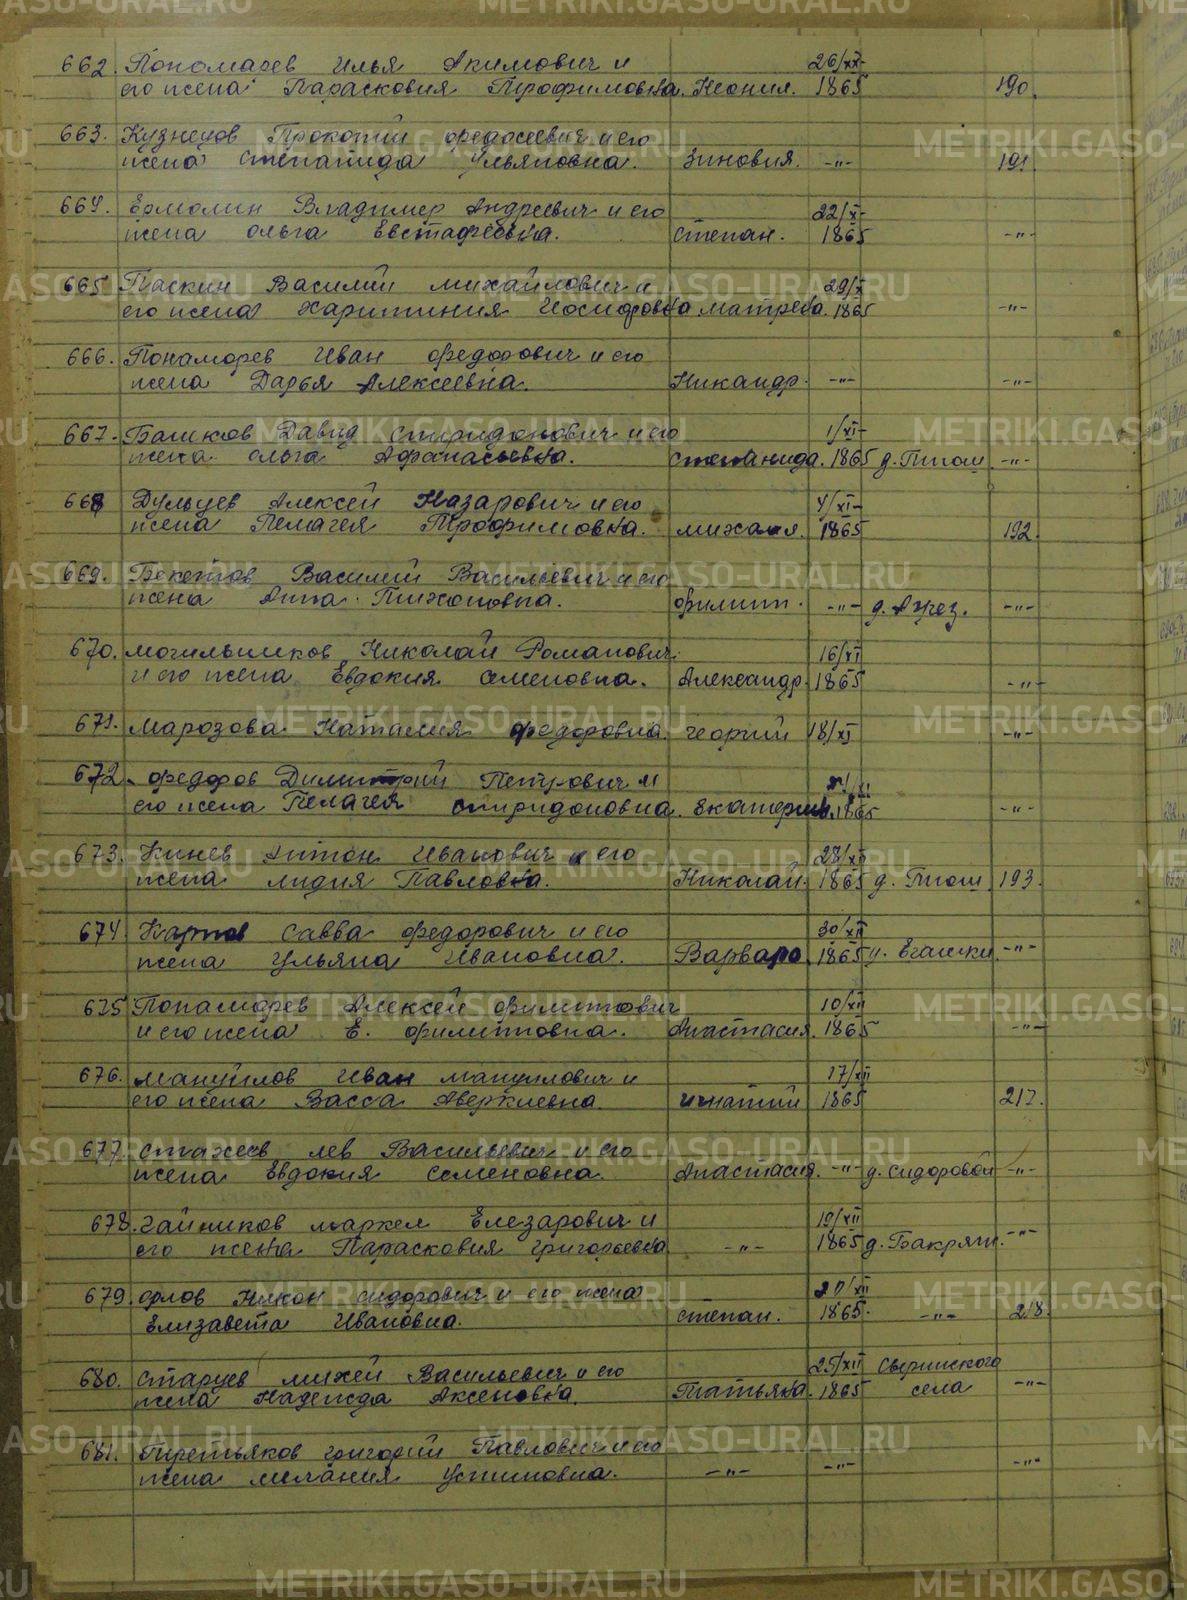 662. Пономарев Илья Акимович и 26/XI-
его жена Парасковия Трофимовна. Неонил. 1865 190.
663. Кузнецов Прокопий Федосеевич и его
жена Степанида Ульяновна. Зиновия. -"- 191.
664. Ермолин Владимер Андреевич и его 22/X-
жена Ольга Евстафеевна. Степан. 1865 -"-
665 Паскин Василий Михайлович и 29/X
его жена Харитиния Иосифовна Матрена. 1865 -"-
666. Понаморев Иван Федорович и его
жена Дарья Алексеевна. Никандр. -"- -"-
667. Башков Давид Спиридонович и его 1/XI-
жена Ольга Афанасьевна. Степанида. 1865 д. Тюш -"-
668 Дульцев Алексей Назарович и его 4/XI-
жена Пелагея Трофимовна. Михаил. 1865 192.
669. Бекетов Василий Васильевич и его
жена Анна Тихоновна. Филипп. -"- д. Ачез. -"-
670. Могильников Николай Романович 16/XI
и его жена Евдокия Семеновна. Александр. 1865 -"-
671. Марозова Наталия Федоровна. Георгий 18/XI -"-
672. Федоров Димитрий Петрович и /XI
его жена Пелагея Спиридоновна. Екатерин. 1865 -"-
673. Кинев Антон Иванович и его 28/XII
жена Лидия Павловна. Николай. 1865 д. Тюш 193.
674. Карпов Савва Федорович и его 30/XII
жена Ульяна Ивановна. Варвара. 1865 -"-
675 Понаморев Алексей Филиппович 10/XII
и его жена Е. Филипповна. Анастасия. 1865 -"-
676. Мануйлов Иван Мануилович и 17/XII
его жена Васса Аверкиевна. Игнатий 1865 217.
677. Стахеев Лев Васильевич и его
жена Евдокия Семеновна. Анастасия. -"- д. Сидоровой -"-
678. Гайников Маркел Елезарович и 19/XII
его жена Парасковия Григорьевна -"- 1865 д. Бакряш. -"-
679. Орлов Никон Сидорович и его жена 20/XII
Елизавета Ивановна. Степан. 1865. -"- 218.
680. Старцев Михей Васильевич и его 25/XII
жена Надежда Аксеновна. Татьяна. 1865 села -"-
681. Третьяков Григорий Павлович и его
жена Мелания Устиновна. -"- -"- -"-
METRIKI.GASO-URAL.RU